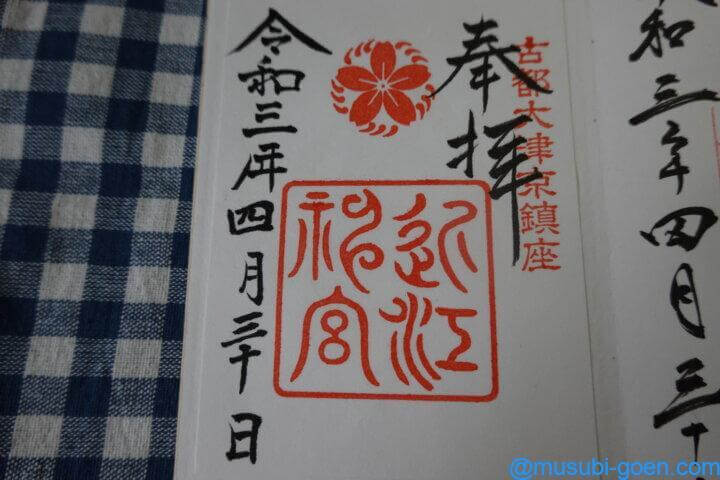 和三年四月三十
古都大津京鎮座
奉拝
近江
神宮
令和三年四月三十日
@musubi-goen.com